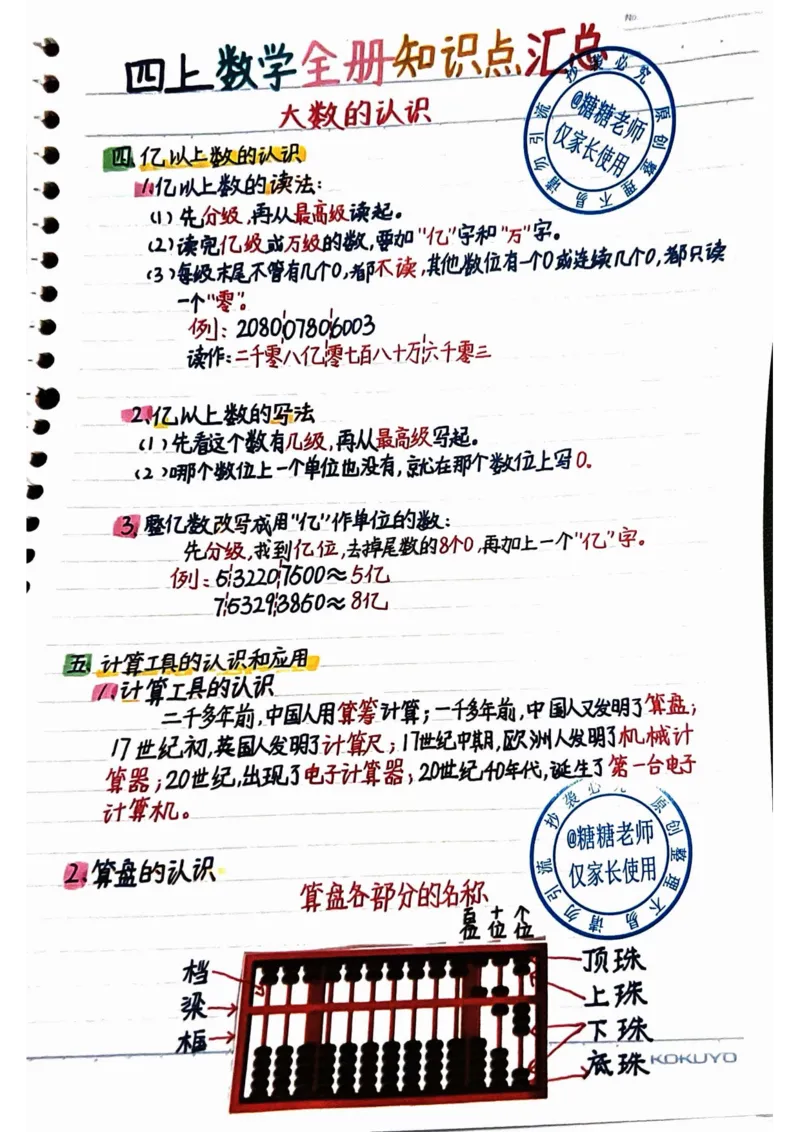 No.
四上数学全册知识点汇总
大数的认识
四、亿以上数的认识
1、亿以上数的读法:
(1)先分级,再从最高级读起。
(2)读完亿级或万级的数,要加"亿"字和"万"字。
(3)每级末尾不管有几个0,都不读,其他数位有一个0或连续几个0,都只读
一个"零"。
例: 208007806003
读作:二千零八亿零七百八十万六千零三
2、亿以上数的写法
(1)先看这个数有几级,再从最高级写起。
(2)哪个数位上一个单位也没有,就在那个数位上写0。
3、整亿数改写成用"亿"作单位的数:
先分级,找到亿位,去掉尾数的8个0,再加上一个"亿"字。
例:532207500≈5亿
753293850≈8亿
五、计算工具的认识和应用
1、计算工具的认识
二千多年前,中国人用算筹计算;一千多年前,中国人又发明了算盘;
17世纪初,英国人发明了计算尺;17世纪中期,欧洲人发明了机械计
算器;20世纪,出现了电子计算器;20世纪40年代,诞生了第一台电子
计算机。
2、算盘的认识
算盘各部分的名称
百位 十位 个位
档
梁
框
顶珠
上珠
下珠
底珠
KOKUYO
原创整理不易请勿引流抄袭必究
@糖糖老师
仅家长使用
原创整理不易请勿引流抄袭必究
@糖糖老师
仅家长使用